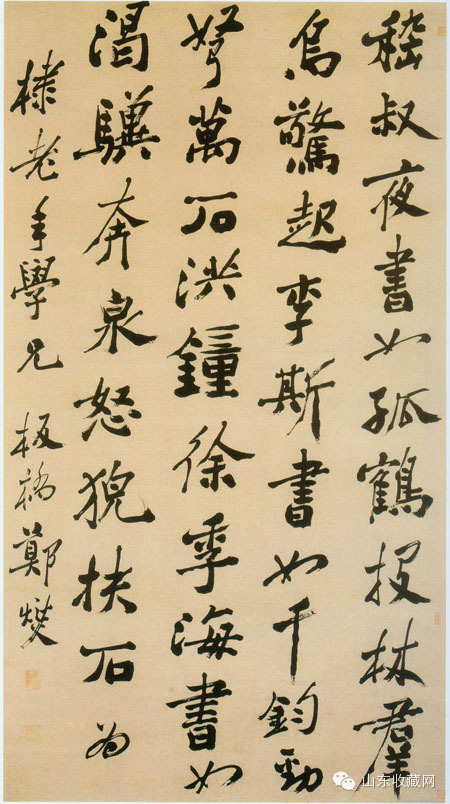 嵇叔夜書如孤鶴投林羣
烏驚起李斯書如千鈞勁
弩萬石洪鐘徐季海書如
渴驥奔泉怒猊抉石為
棣老年學兄 板橋鄭燮
山东收藏网